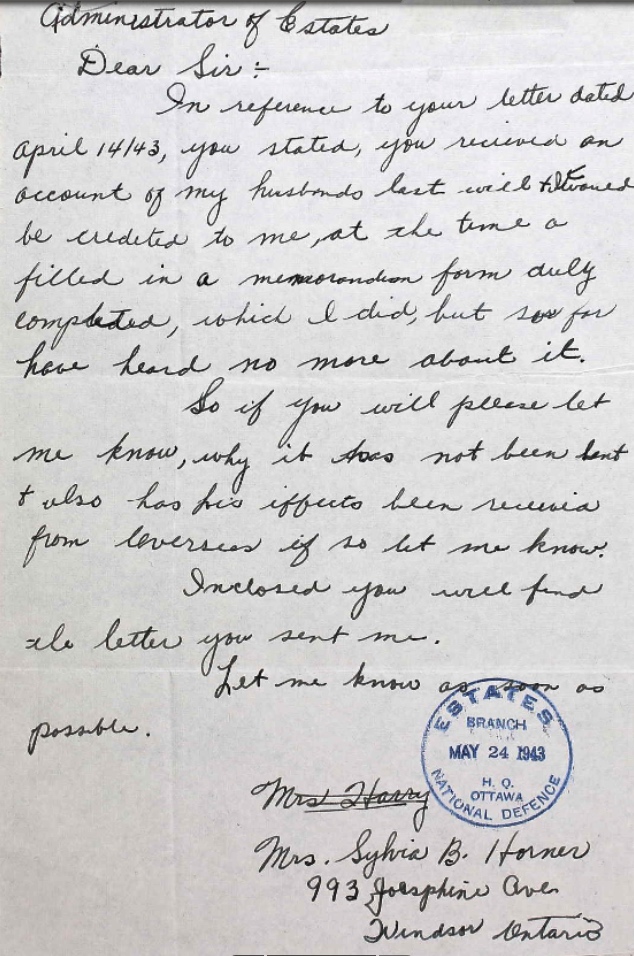 Administrator of Estates
Dear Sir:-
In reference to your letter dated
April 14/43, you stated, you recieved an
account of my husbands last will +
be credeted to me, at the time a
filled in a memorandion form duly
completed, which I did, but so far
have heard no more about it.
So if you will please let
me know, why it has not been sent
+ also has his effects been
from Oversees if so let me know.
Inclosed you will find
the letter you sent me.
Let me know as soon as
possible.
ESTATES
BRANCH
MAY 24 1943
H. Q.
OTTAWA
NATIONAL DEFENCE
Mrs Harry
Mrs. Sylvia B. Horner
993 Josephine Ave.
Windsor Ontario